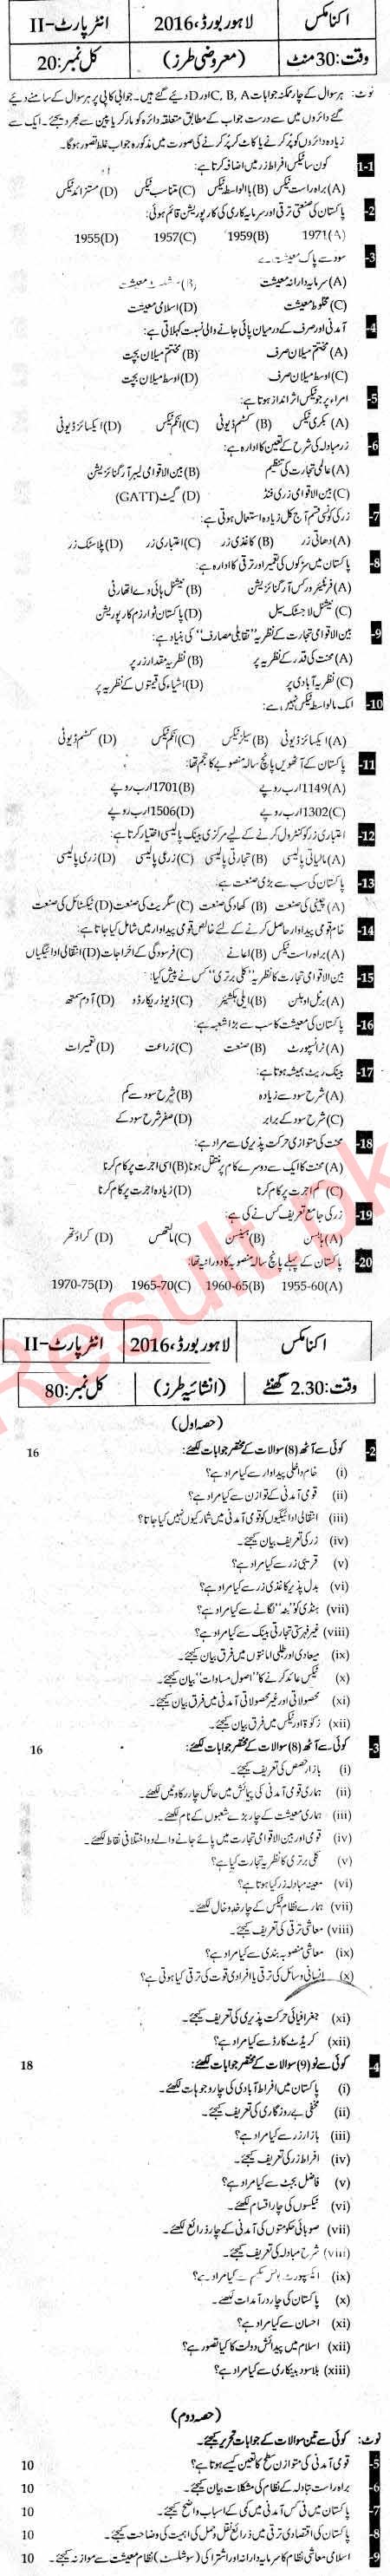 اکنامکس
لاہور بورڈ، 2016
انٹر پارٹ-II
وقت: 30 منٹ
(معروضی طرز)
کل نمبر: 20
نوٹ: ہر سوال کے چار ممکنہ جوابات A، B، C اور D دیئے گئے ہیں۔ جوابی کاپی پر ہر سوال کے سامنے دیئے
گئے دائروں میں سے درست جواب کے مطابق متعلقہ دائرہ کو مارکر یا پین سے بھر دیجئے۔ ایک سے
زیادہ دائروں کو پُر کرنے یا کاٹ کر پُر کرنے کی صورت میں مذکورہ جواب غلط تصور ہوگا۔
1-1 کون سا ٹیکس افراط زر میں اضافہ کرتا ہے:
(A) براہ راست ٹیکس (B) بالواسطہ ٹیکس (C) متناسب ٹیکس (D) متزائد ٹیکس
2- پاکستان کی صنعتی ترقی اور سرمایہ کاری کی کارپوریشن قائم ہوئی:
1971(A) 1959(B) 1957(C) 1955(D)
3- سود سے پاک معیشت ہے
(A) سرمایہ دارانہ معیشت (B) معیشت
(C) مخلوط معیشت (D) اسلامی معیشت
4- آمدنی اور صرف کے درمیان پائی جانے والی نسبت کہلاتی ہے:
(A) مختتم میلان صرف (B) مختتم میلان بچت
(C) اوسط میلان صرف (D) اوسط میلان بچت
5- امراء پر جو ٹیکس اثر انداز ہوتا ہے:
(A) بکری ٹیکس (B) کسٹم ڈیوٹی (C) انکم ٹیکس (D) ایکسائز ڈیوٹی
6- زرمبادلہ کی شرح کے تعین کا ادارہ ہے:
(A) عالمی تجارت کی تنظیم (B) بین الاقوامی لیبر آرگنائزیشن
(C) بین الاقوامی زری فنڈ (D) گیٹ (GATT)
7- زر کی کونسی قسم آج کل زیادہ استعمال ہوتی ہے:
(A) دھاتی زر (B) کاغذی زر (C) اعتباری زر (D) پلاسٹک زر
8- پاکستان میں سڑکوں کی تعمیر اور ترقی کا ادارہ ہے:
(A) فرنٹیئر ورکس آرگنائزیشن (B) نیشنل ہائی وے اتھارٹی
(C) نیشنل لاجسٹک سیل (D) پاکستان ٹوارزم کارپوریشن
9- بین الاقوامی تجارت کے نظریہ "تقابلی مصارف" کی بنیاد ہے:
(A) محنت کی قدر کے نظریہ پر (B) نظریہ مقدار زر پر
(C) نظریہ آبادی پر (D) اشیاء کی قیمتوں کے نظریہ پر
10- ایک بالواسطہ ٹیکس نہیں ہے:
(A) ایکسائز ڈیوٹی (B) سیلز ٹیکس (C) انکم ٹیکس (D) کسٹم ڈیوٹی
11- پاکستان کے آٹھویں پانچ سالہ منصوبے کا حجم تھا:
(A) 1149 ارب روپے (B) 1701 ارب روپے
(C) 1302 ارب روپے (D) 1506 ارب روپے
12- اعتباری زر کو کنٹرول کرنے کے لیے مرکزی بینک پالیسی اختیار کرتا ہے:
(A) مالیاتی پالیسی (B) تجارتی پالیسی (C) زرعی پالیسی (D) زری پالیسی
13- پاکستان کی سب سے بڑی صنعت ہے:
(A) چینی کی صنعت (B) کھاد کی صنعت (C) سگریٹ کی صنعت (D) ٹیکسٹائل کی صنعت
14- خام قومی پیداوار حاصل کرنے کے لئے خالص قومی پیداوار میں شامل کیا جاتا ہے:
(A) براہ راست ٹیکس (B) اعانے (C) فرسودگی کے اخراجات (D) انتقالی ادائیگیاں
15- بین الاقوامی تجارت کا نظریہ "کلی برتری" کس نے پیش کیا:
(A) برٹل اوہلن (B) ایلی ہیکشیر (C) ڈیوڈ ریکارڈو (D) آدم سمتھ
16- پاکستان کی معیشت کا سب سے بڑا شعبہ ہے:
(A) ٹرانسپورٹ (B) صنعت (C) زراعت (D) تعمیرات
17- بینک ریٹ ہمیشہ ہوتا ہے:
(A) شرح سود سے زیادہ (B) شرح سود سے کم
(C) شرح سود کے برابر (D) صفر شرح سود کے
18- محنت کی متوازی حرکت پذیری سے مراد ہے:
(A) محنت کا ایک سے دوسرے کام پر منتقل ہونا (B) اسی اجرت پر کام کرنا
(C) کم اجرت پر کام کرنا (D) زیادہ اجرت پر کام کرنا
19- زر کی جامع تعریف کس نے کی ہے:
(A) ہابسن (B) ہینسن (C) مالتھس (D) کراؤتھر
20- پاکستان کے پہلے پانچ سالہ منصوبہ کا دورانیہ تھا:
1955-60(A) 1960-65(B) 1965-70(C) 1970-75(D)
اکنامکس
لاہور بورڈ، 2016
انٹر پارٹ-II
وقت: 2.30 گھنٹے
(انشائیہ طرز)
کل نمبر: 80
(حصہ اول)
2- کوئی سے آٹھ (8) سوالات کے مختصر جوابات لکھئے: 16
(i) خام داخلی پیداوار سے کیا مراد ہے؟
(ii) قومی آمدنی کے توازن سے کیا مراد ہے؟
(iii) انتقالی ادائیگیوں کو قومی آمدنی میں شمار کیوں نہیں کیا جاتا؟
(iv) زر کی تعریف بیان کیجئے۔
(v) قریبی زر سے کیا مراد ہے؟
(vi) بدل پذیر کاغذی زر سے کیا مراد ہے؟
(vii) ہنڈی کو "بٹہ" لگانے سے کیا مراد ہے؟
(viii) غیر فہرستی تجارتی بینک سے کیا مراد ہے؟
(ix) میعادی اور طلبی امانتوں میں فرق بیان کیجئے۔
(x) ٹیکس عائد کرنے کا "اصول مساوات" بیان کیجئے۔
(xi) محصولاتی اور غیر محصولاتی آمدنی میں فرق بیان کیجئے۔
(xii) زکوٰۃ اور ٹیکس میں فرق بیان کیجئے۔
3- کوئی سے آٹھ (8) سوالات کے مختصر جوابات لکھئے: 16
(i) بازار حصص کی تعریف کیجئے۔
(ii) ہماری قومی آمدنی کی پیمائش میں حائل چار رکاوٹیں لکھئے۔
(iii) ہماری معیشت کے چار بڑے شعبوں کے نام لکھئے۔
(iv) قومی اور بین الاقوامی تجارت میں پائے جانے والے دو اختلافی نقاط لکھئے۔
(v) کلی برتری کا نظریہ تجارت کیا ہے؟
(vi) معینہ مبادلہ زر کیا ہوتا ہے؟
(vii) ہمارے نظام ٹیکس کے چار خدوخال لکھئے۔
(viii) معاشی ترقی کی تعریف کیجئے۔
(ix) معاشی منصوبہ بندی سے کیا مراد ہے؟
(x) انسانی وسائل کی ترقی یا افرادی قوت کی ترقی کیا ہوتی ہے؟
(xi) جغرافیائی حرکت پذیری کی تعریف کیجئے۔
(xii) کریڈٹ کارڈ سے کیا مراد ہے؟
4- کوئی سے نو (9) سوالات کے مختصر جوابات لکھئے: 18
(i) پاکستان میں افراط آبادی کی چار وجوہات لکھئے۔
(ii) مخفی بے روزگاری کی تعریف کیجئے۔
(iii) بازار زر سے کیا مراد ہے؟
(iv) افراط زر کی تعریف کیجئے۔
(v) فاضل بجٹ سے کیا مراد ہے؟
(vi) ٹیکسوں کی چار اقسام لکھئے۔
(vii) صوبائی حکومتوں کی آمدنی کے چار ذرائع لکھئے۔
(viii) شرح مبادلہ کی تعریف کیجئے۔
(ix) ایکسپورٹ سے کیا مراد ہے؟
(x) پاکستان کی چار درآمدات لکھئے۔
(xi) احسان سے کیا مراد ہے؟
(xii) اسلام میں پیدائش دولت کا کیا تصور ہے؟
(xiii) بلاسود بینکاری سے کیا مراد ہے؟
(حصہ دوم)
نوٹ: کوئی سے تین سوالات کے جوابات تحریر کیجئے۔
5- قومی آمدنی کی متوازن سطح کا تعین کیسے ہوتا ہے؟ 10
6- براہ راست تبادلہ کے نظام کی مشکلات بیان کیجئے۔ 10
7- پاکستان میں فی کس آمدنی میں کمی کے اسباب واضح کیجئے۔ 10
8- پاکستان کی اقتصادی ترقی میں ذرائع نقل و حمل کی اہمیت کی وضاحت کیجئے۔ 10
9- اسلامی معاشی نظام کا سرمایہ دارانہ اور اشتراکی (سوشلسٹ) نظام معیشت سے موازنہ کیجئے۔ 10
Result.pk